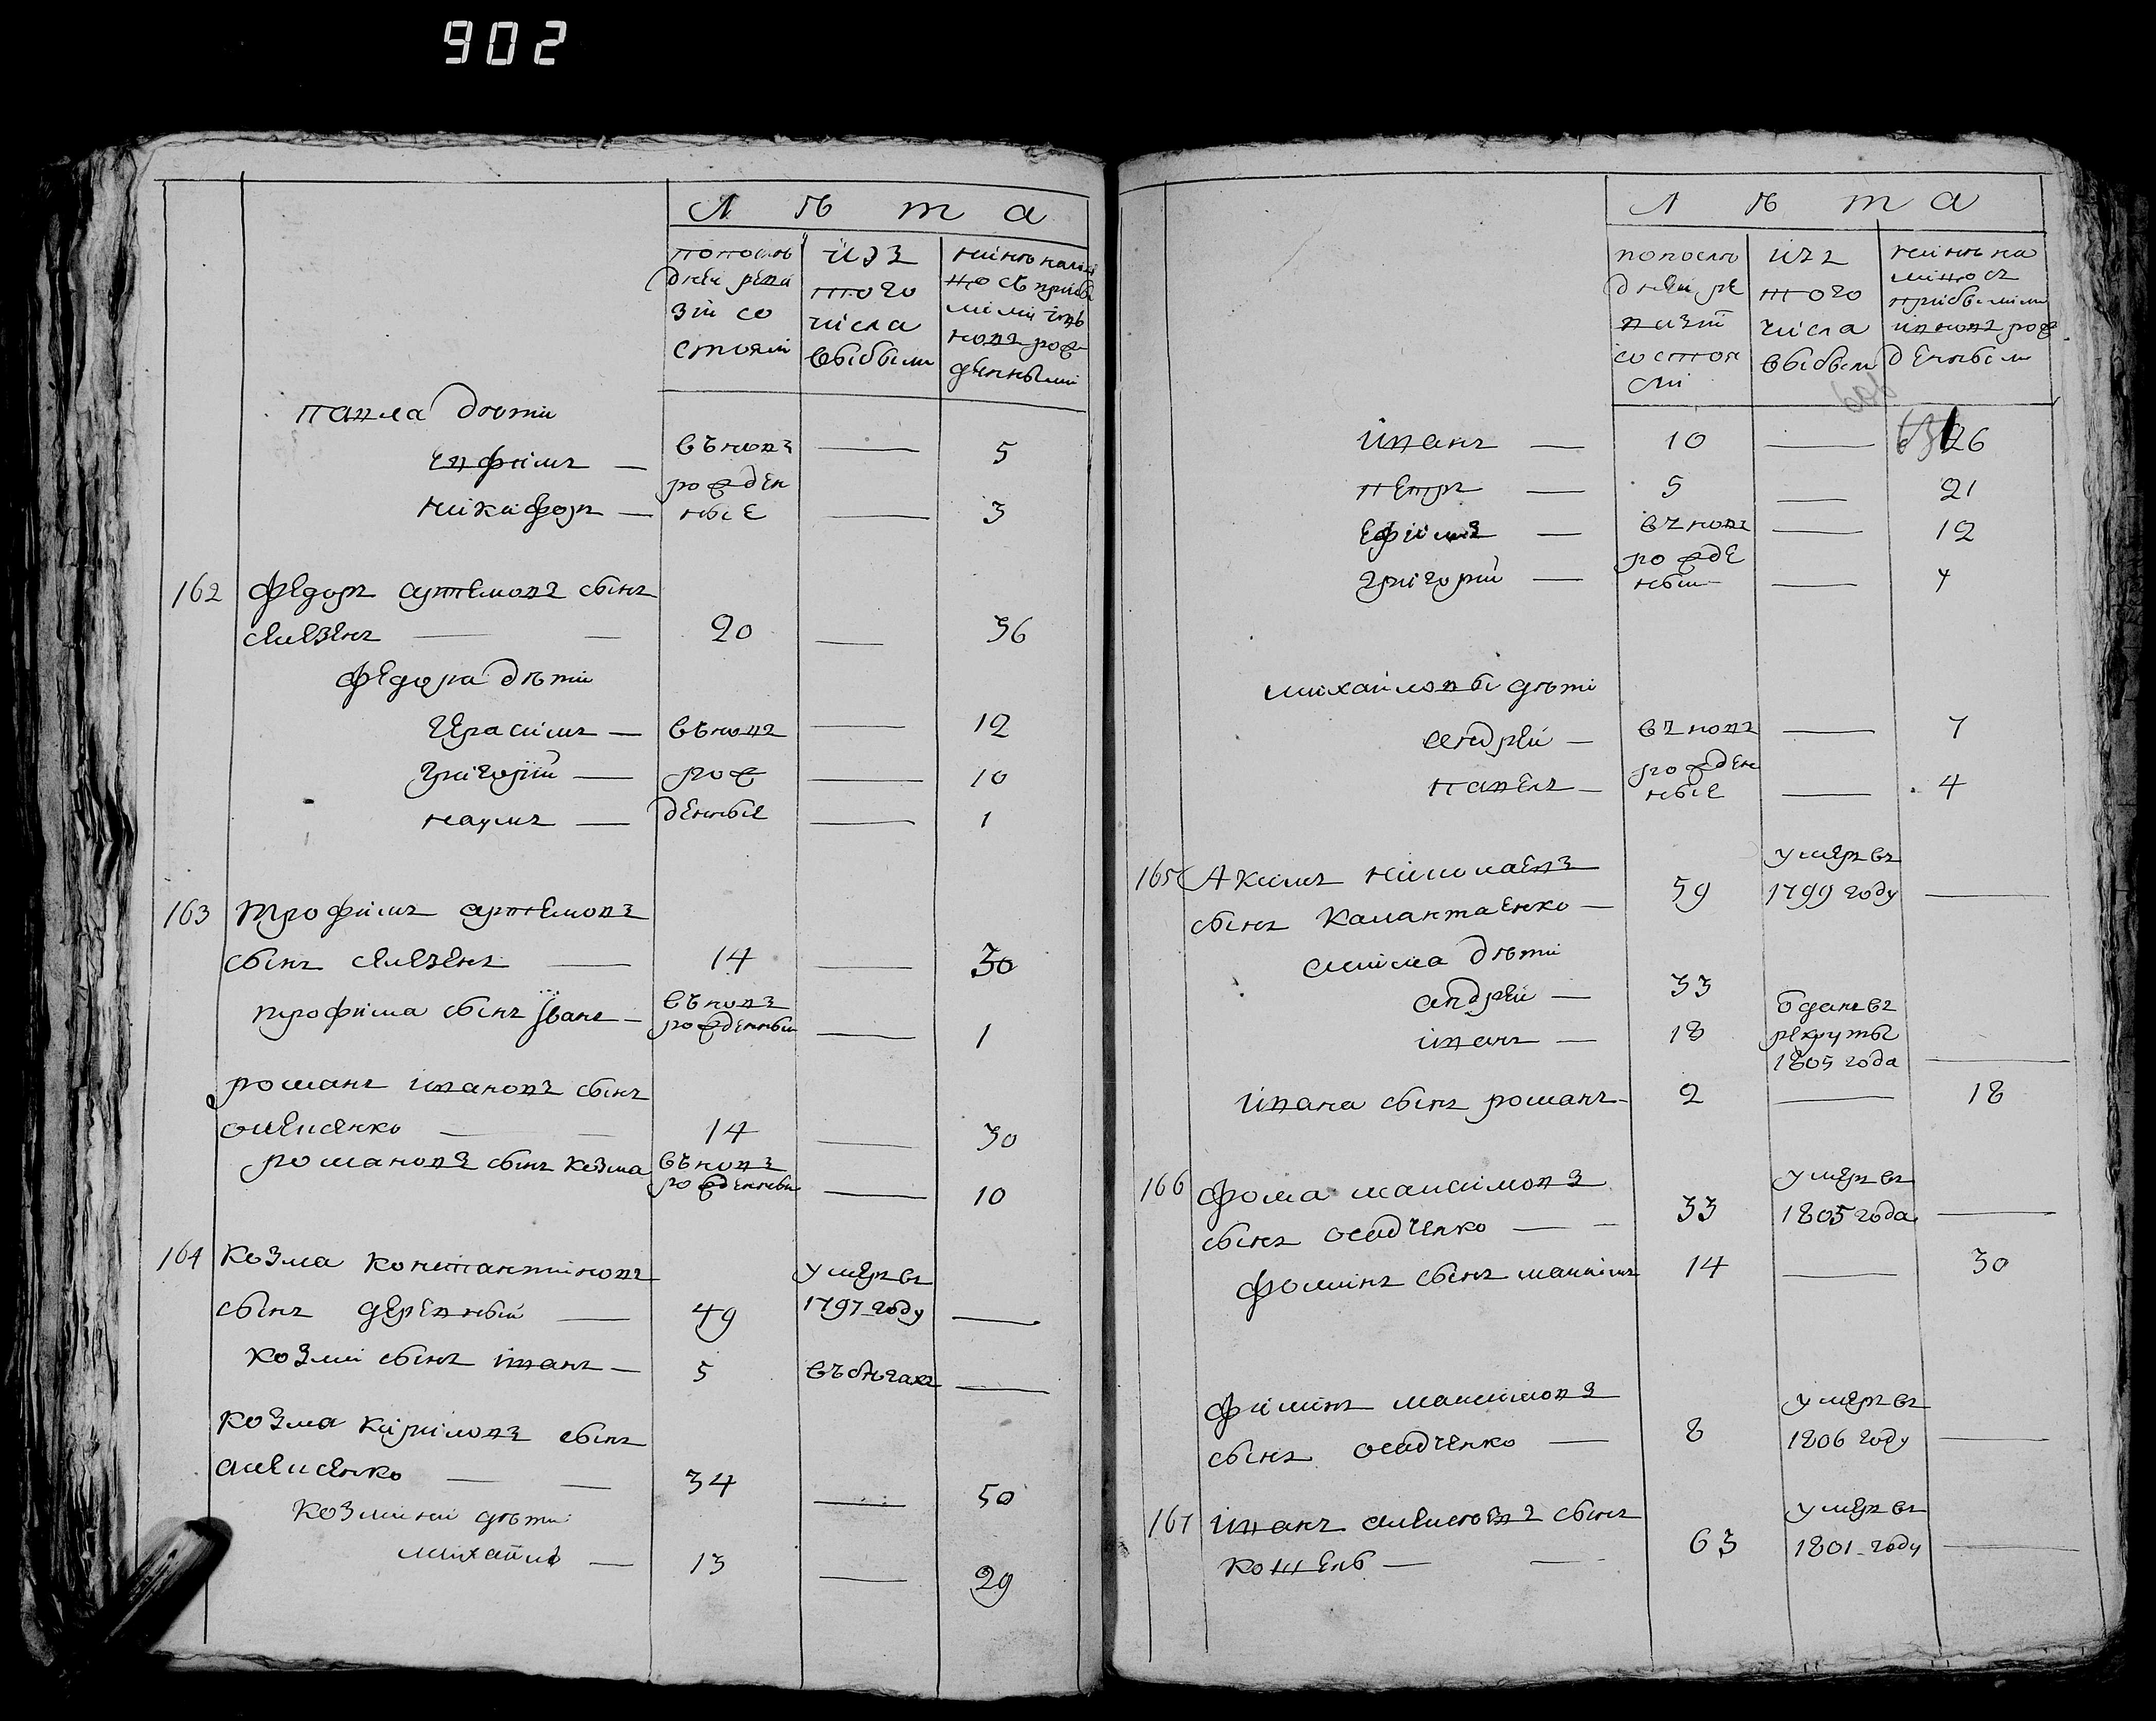 902
Л ѣ т а
попослѣ
дней реви
зіи со
стояли
изъ
того
числа
выбыли
нинѣ нали
цо съ прибы
лими и внѣ
новъ рож
денными
павла дѣти
евфимъ —
въновъ
рожден
ные
— 5
никифоръ — — 3
162 федоръ артемовъ сынъ
селезень — — 20 — 36
федора дѣти
герасимъ — въновъ — 12
григорій — рож — 10
наумъ — денные — 1
163 трофимъ артемовъ
сынъ селезень — 14 — 30
трофима сынъ Іванъ —
въновъ
рожденный — 1
романъ ивановъ сынъ
омелченко — — 14 — 30
романовъ сынъ козма
въновъ
рожденный — 10
164 козма константиновъ
сынъ деревный — 49
умеръ въ
1797 году —
козми сынъ иванъ — 5 въ бѣгахъ —
козма кириловъ сынъ
— — 34 — 50
козмини дѣти
михайло — 13 — 29
Л ѣ т а
попослѣ
дней ре
визіи
состоя
ли
изъ
того
числа
выбыли
нинѣ на
лицо съ
прибылими
и вновъ рож
денными
606
631
иванъ — 10 — 26
петръ — 5 — 21
ефимъ — въновъ — 12
рожде
григорій — ный — 7
михайловы дѣти
андрей — въновъ — 7
рожден
павелъ — ные — 4
165 Акимъ николаевъ
сынъ Калантаенко — 59
умеръ въ
1799 году —
акима дѣти
андрей — 33
иванъ — 18
отданъ въ
рекруты
1805 года —
ивана сынъ романъ — 2 — 18
166 фома максимовъ
сынъ осадченко — — 33
умеръ въ
1805 года —
фоминъ сынъ максимъ 14 — 30
филипъ максимовъ
сынъ осадченко — 8
умеръ въ
1806 году —
167 иванъ алексѣевъ сынъ
кошель — — 63
умеръ въ
1801 году —